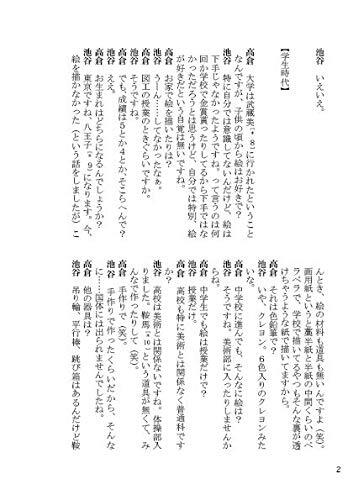 池谷　いえいえ。
【学生時代】
高倉　大学は武蔵美(*8)に行かれたということ
なんですが、子供の頃から絵はお好きで？
池谷　特に自分では意識してないんだけど、絵は
下手じゃなかったですね。って言うのは何
回か学校で金賞貰ったりしてるから下手ではな
かっただろうとは思うけど、自分では特別、絵
が好きだという自覚は無いですね。
高倉　お家で絵を描いたりは？
池谷　うーん……でもなかったなぁ。
高倉　図工の授業のときぐらいですか。
池谷　そうですね。
高倉　でも、成績は５とか４とか、そこらへんで？
池谷　ええ。
高倉　お生まれはどちらになるんでしょうか？
池谷　東京ですね、八王子(*9)になります。今、
絵を描かなかった（という話をしましたが）こ
んとき、絵の材料も道具も無いんですよ（笑）。
画用紙というと藁半紙と半紙の中間くらいのペ
ラペラで、学校で描いてるやつもそんな裏が透
けちゃうような紙で描いてますから。
高倉　それは色鉛筆で？
池谷　いや、クレヨン。６色入りのクレヨンみた
いな。
高倉　中学校に進んでも、そんなに絵は？
池谷　そうですね、美術部に入ったりしませんか
らね。
高倉　中学生でも絵は授業だけで？
池谷　授業だけ。
高倉　高校も特に美術とは関係なく普通科です
か？
池谷　高校は美術とは関係ないですね。体操部入
りました。鞍馬(*10)という道具が無くて、み
んなで作ったりして（笑）。
高倉　手作りで（笑）。
池谷　手作りで作ったくらいだから、そんな
に…国体には出られませんでしたね。
高倉　他の器具は？
池谷　吊り輪、平行棒、跳び箱はあるんだけど鞍
2